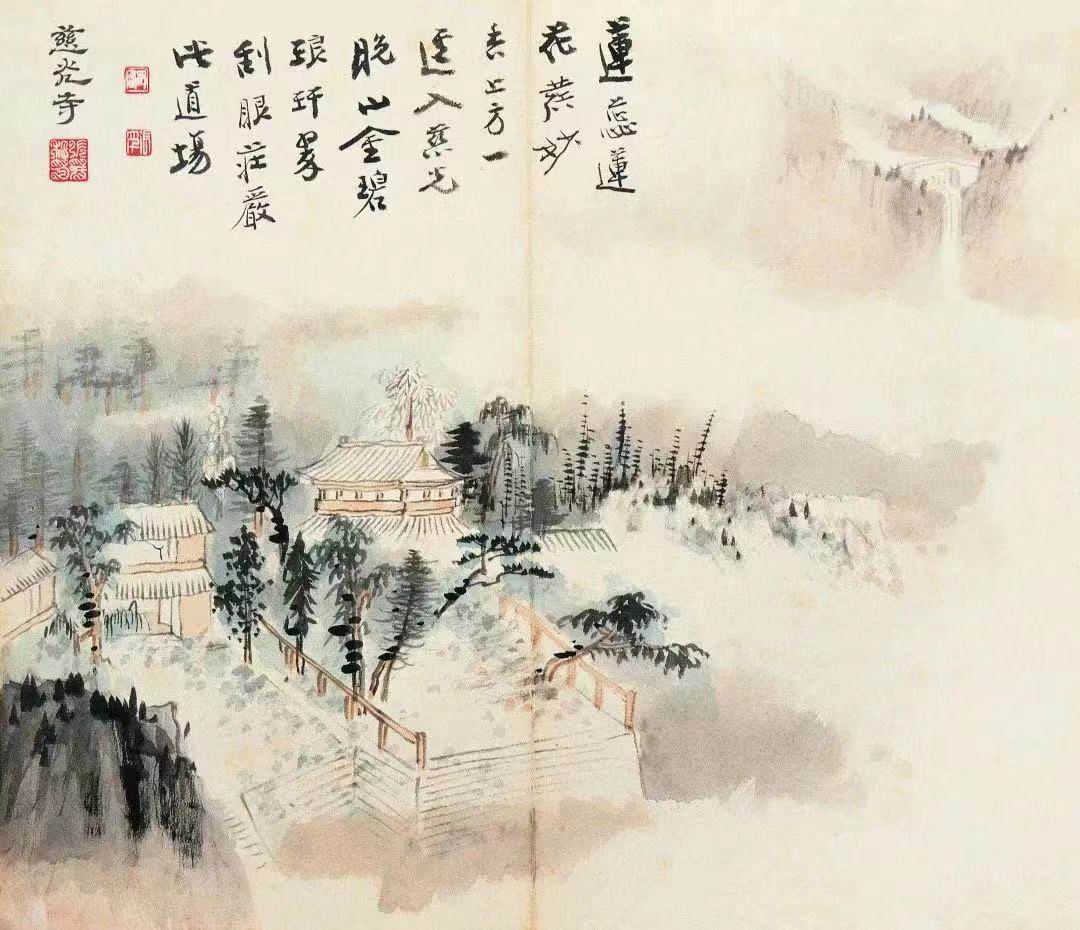 蓮蕊蓮
花妙
香上方一
逕入慈光
晚山金碧
琅玕翠
刮眼莊嚴
此道場
慈光寺